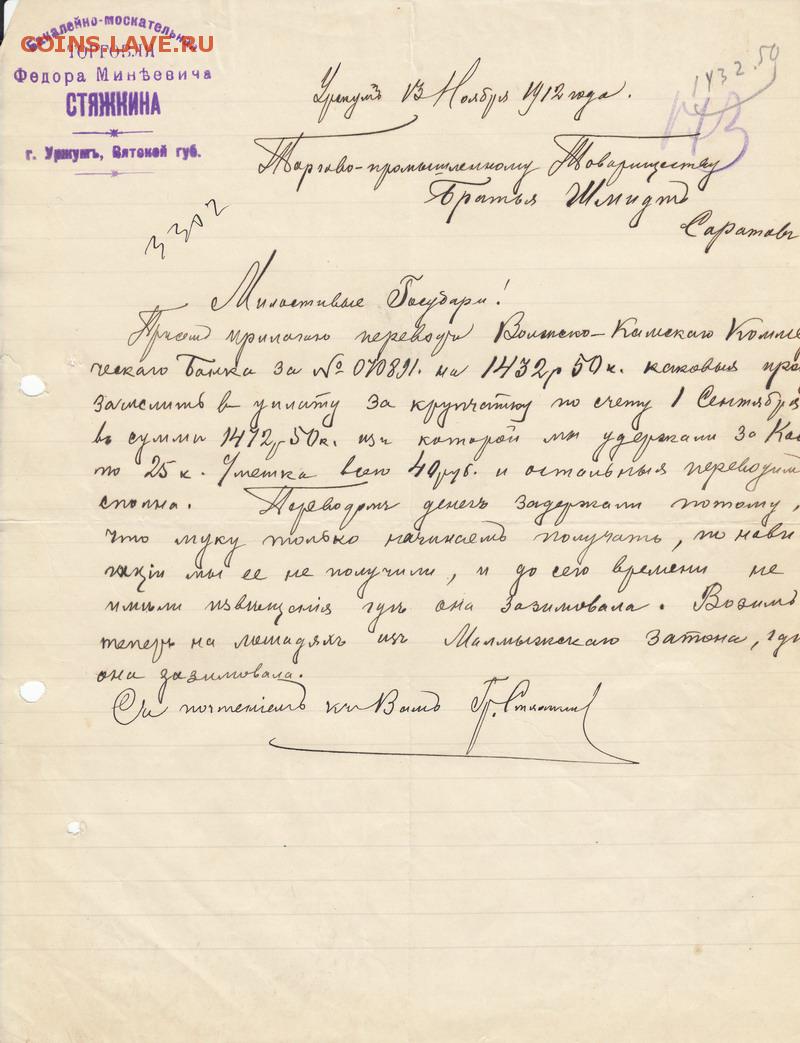 Бакалейно-москательная
COINS.LAVE.RU
ТОРГОВЛЯ
Федора Минѣевича
СТЯЖКИНА
г. Уржумъ, Вятской губ.
1432.50
143
Уржумъ 13 Ноября 1912 года.
Торгово-промышленному Товариществу
Братья Шмидтъ
Саратовъ
3302
Милостивые Государи!
При семъ прилагаю переводъ Волжско-Камскаго Комме
ческаго Банка за № 070891. на 1432 р 50 к. каковыя про
зачислить въ уплату за крупчатку по счету 1 Сентября
въ сумми 1472 р 50 к. изъ которой мы удержали за
по 25 к. с/мешка всего 40 руб. и остальныя переводимъ
сполна. Переводомъ денегъ задержали потому,
что муку только начинаемъ получать, по нави
гацiи мы ее не получили, и до сего времени не
имѣли извѣщенiя гдѣ она зазимовала. Возимъ
теперь на лошадяхъ изъ Малмыжскаго затона, гдѣ
она зазимовала.
Съ почтенiемъ къ Вамъ Стяжкинъ